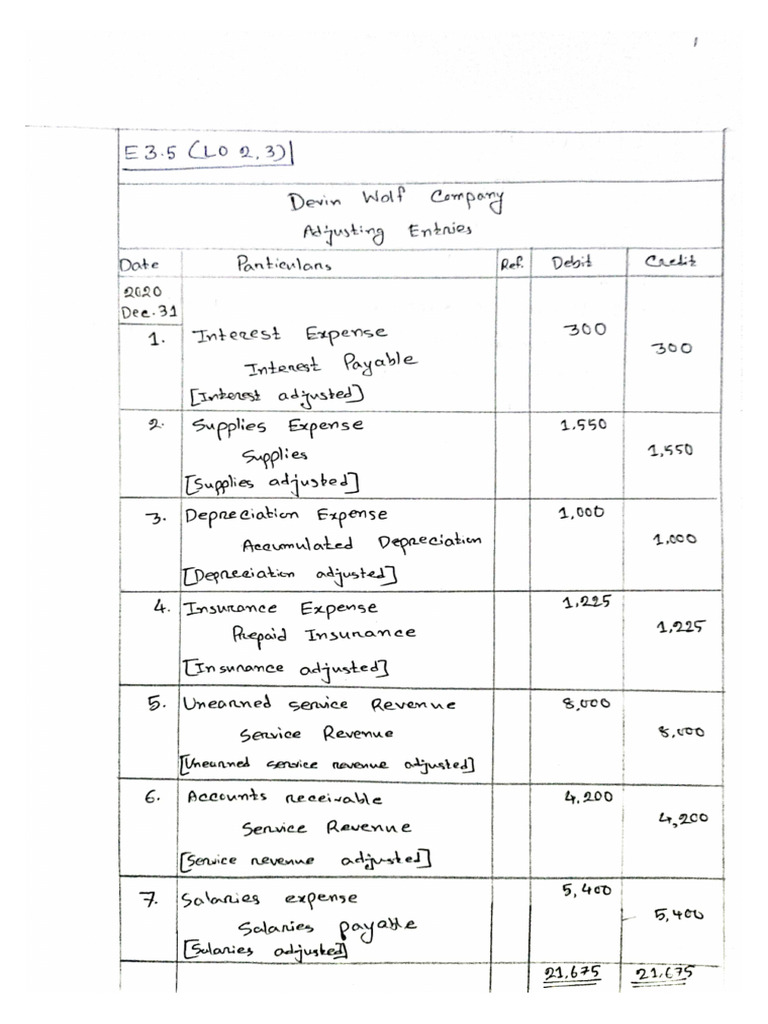 1
E 3.5 (LO 2,3)
Devin Wolf Company
Adjusting Entries
Date Particulars Ref. Debit Credit
2020
Dec. 31
1. Interest Expense 300
Interest Payable 300
[Interest adjusted]
2. Supplies Expense 1.550
Supplies 1,550
[Supplies adjusted]
3. Depreciation Expense 1,000
Accumulated Depreciation 1,000
[Depreciation adjusted]
4. Insurance Expense 1,225
Prepaid Insurance 1,225
[Insurance adjusted]
5. Unearned service Revenue 8,000
Service Revenue 8,000
[Unearned service revenue adjusted]
6. Accounts receivable 4,200
Service Revenue 4,200
[Service revenue adjusted]
7. Salaries expense 5,400
Salaries payable 5,400
[Salaries adjusted]
21,675 21,675